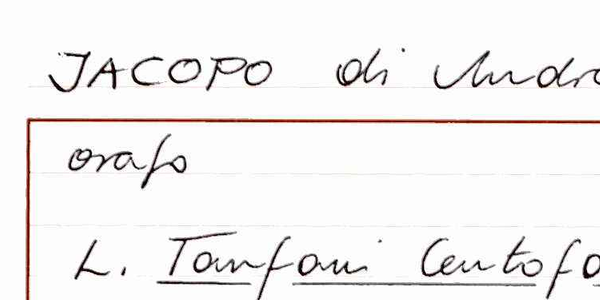 JACOPO di Andr
orafo
L. Tanfani Centofa